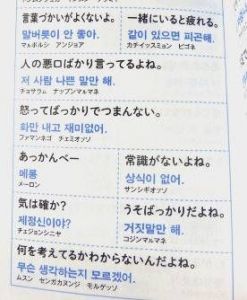 言葉づかいがよくないよ。
말버릇이 안 좋아.
マㇽボルシ アンジョア
一緒にいると疲れる。
같이 있으면 피곤해.
カチイッスミョン ピゴネ
人の悪口ばかり言ってるよね。
저 사람 나쁜 말만 해.
チョサラム ナップンマルマネ
怒ってばっかりでつまんない。
화만 내고 재미없어.
ファマンネゴ チェミオプソ
あっかんべー
메롱
メーロン
常識がないよね。
상식이 없어.
サンシギオプソ
気は確か?
제정신이야?
チェジョンシニヤ
うそばっかりだよね。
거짓말만 해.
コジンマルマネ
何を考えてるかわからないんだよね。
무슨 생각하는지 모르겠어.
ムスン センガカヌンジ モルゲッソ